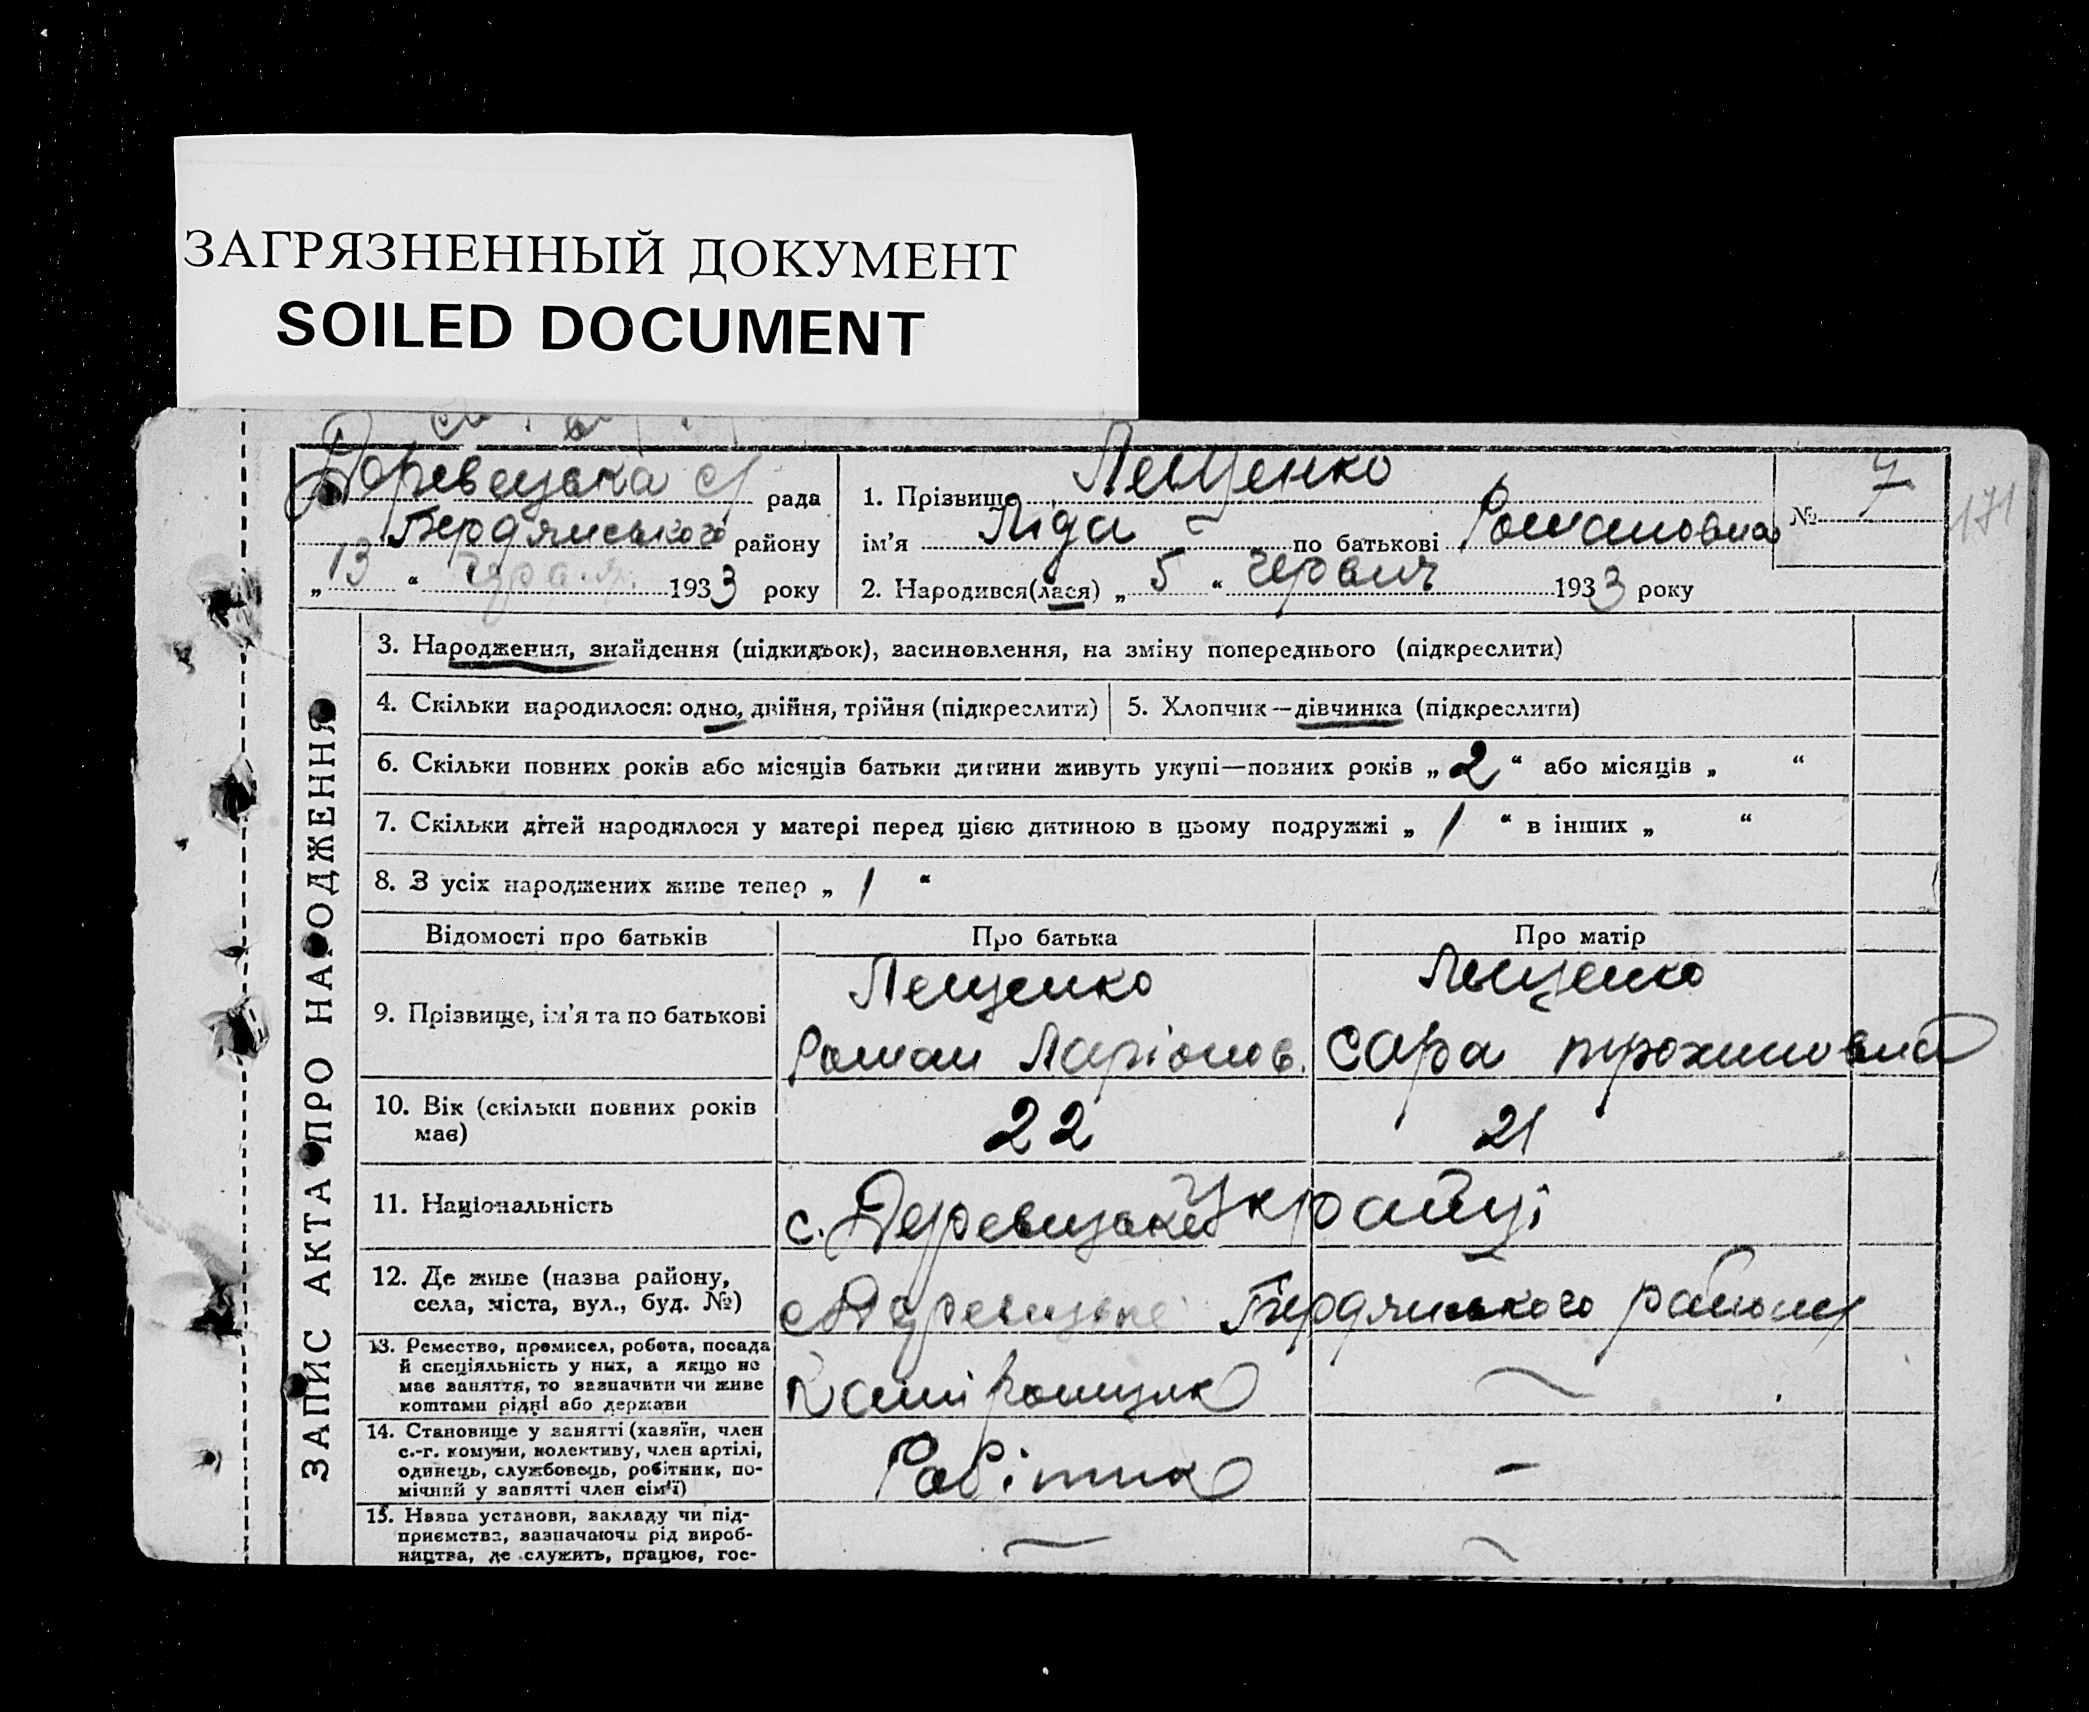 ЗАГРЯЗНЕННЫЙ ДОКУМЕНТ
SOILED DOCUMENT
рада
Бердянського району
„ 13 “ 1933 року
1. Прізвище Лещенко
ім’я Ліда по батькові Романовна
2. Народився(лася) „ 5 “ червня 1933 року
№ 7
171
ЗАПИС АКТА ПРО НАРОДЖЕННЯ
3. Народження, знайдення (підкидьок), засиновлення, на зміну попереднього (підкреслити)
4. Скільки народилося: одно, двійня, трійня (підкреслити)
5. Хлопчик—дівчинка (підкреслити)
6. Скільки повних років або місяців батьки дитини живуть укупі—повних років „ 2 “ або місяців „ “
7. Скільки дітей народилося у матері перед цією дитиною в цьому подружжі „ 1 “ в інших „ “
8. З усіх народжених живе тепер „ 1 “
Відомості про батьків
Про батька
Про матір
9. Прізвище, ім’я та по батькові
Лещенко
Роман Ларіонов.
Лещенко
Сара Трохимовна
10. Вік (скільки повних років
має)
22
21
11. Національність
с. Українці
12. Де живе (назва району,
села, міста, вул., буд. №)
Бердянського району
13. Ремество, промисел, робота, посада
й спеціяльність у них, а якщо не
має заняття, то зазначити чи живе
коштами рідні або держави
14. Становище у занятті (хазяїн, член
с.-г. комуни, колективу, член артілі,
одинець, службовець, робітник, по-
мічний у занятті член сім’ї)
Робітник
–
15. Назва установи, закладу чи під-
приємства, зазначаючи рід вироб-
ництва, де служить, працює, гос-